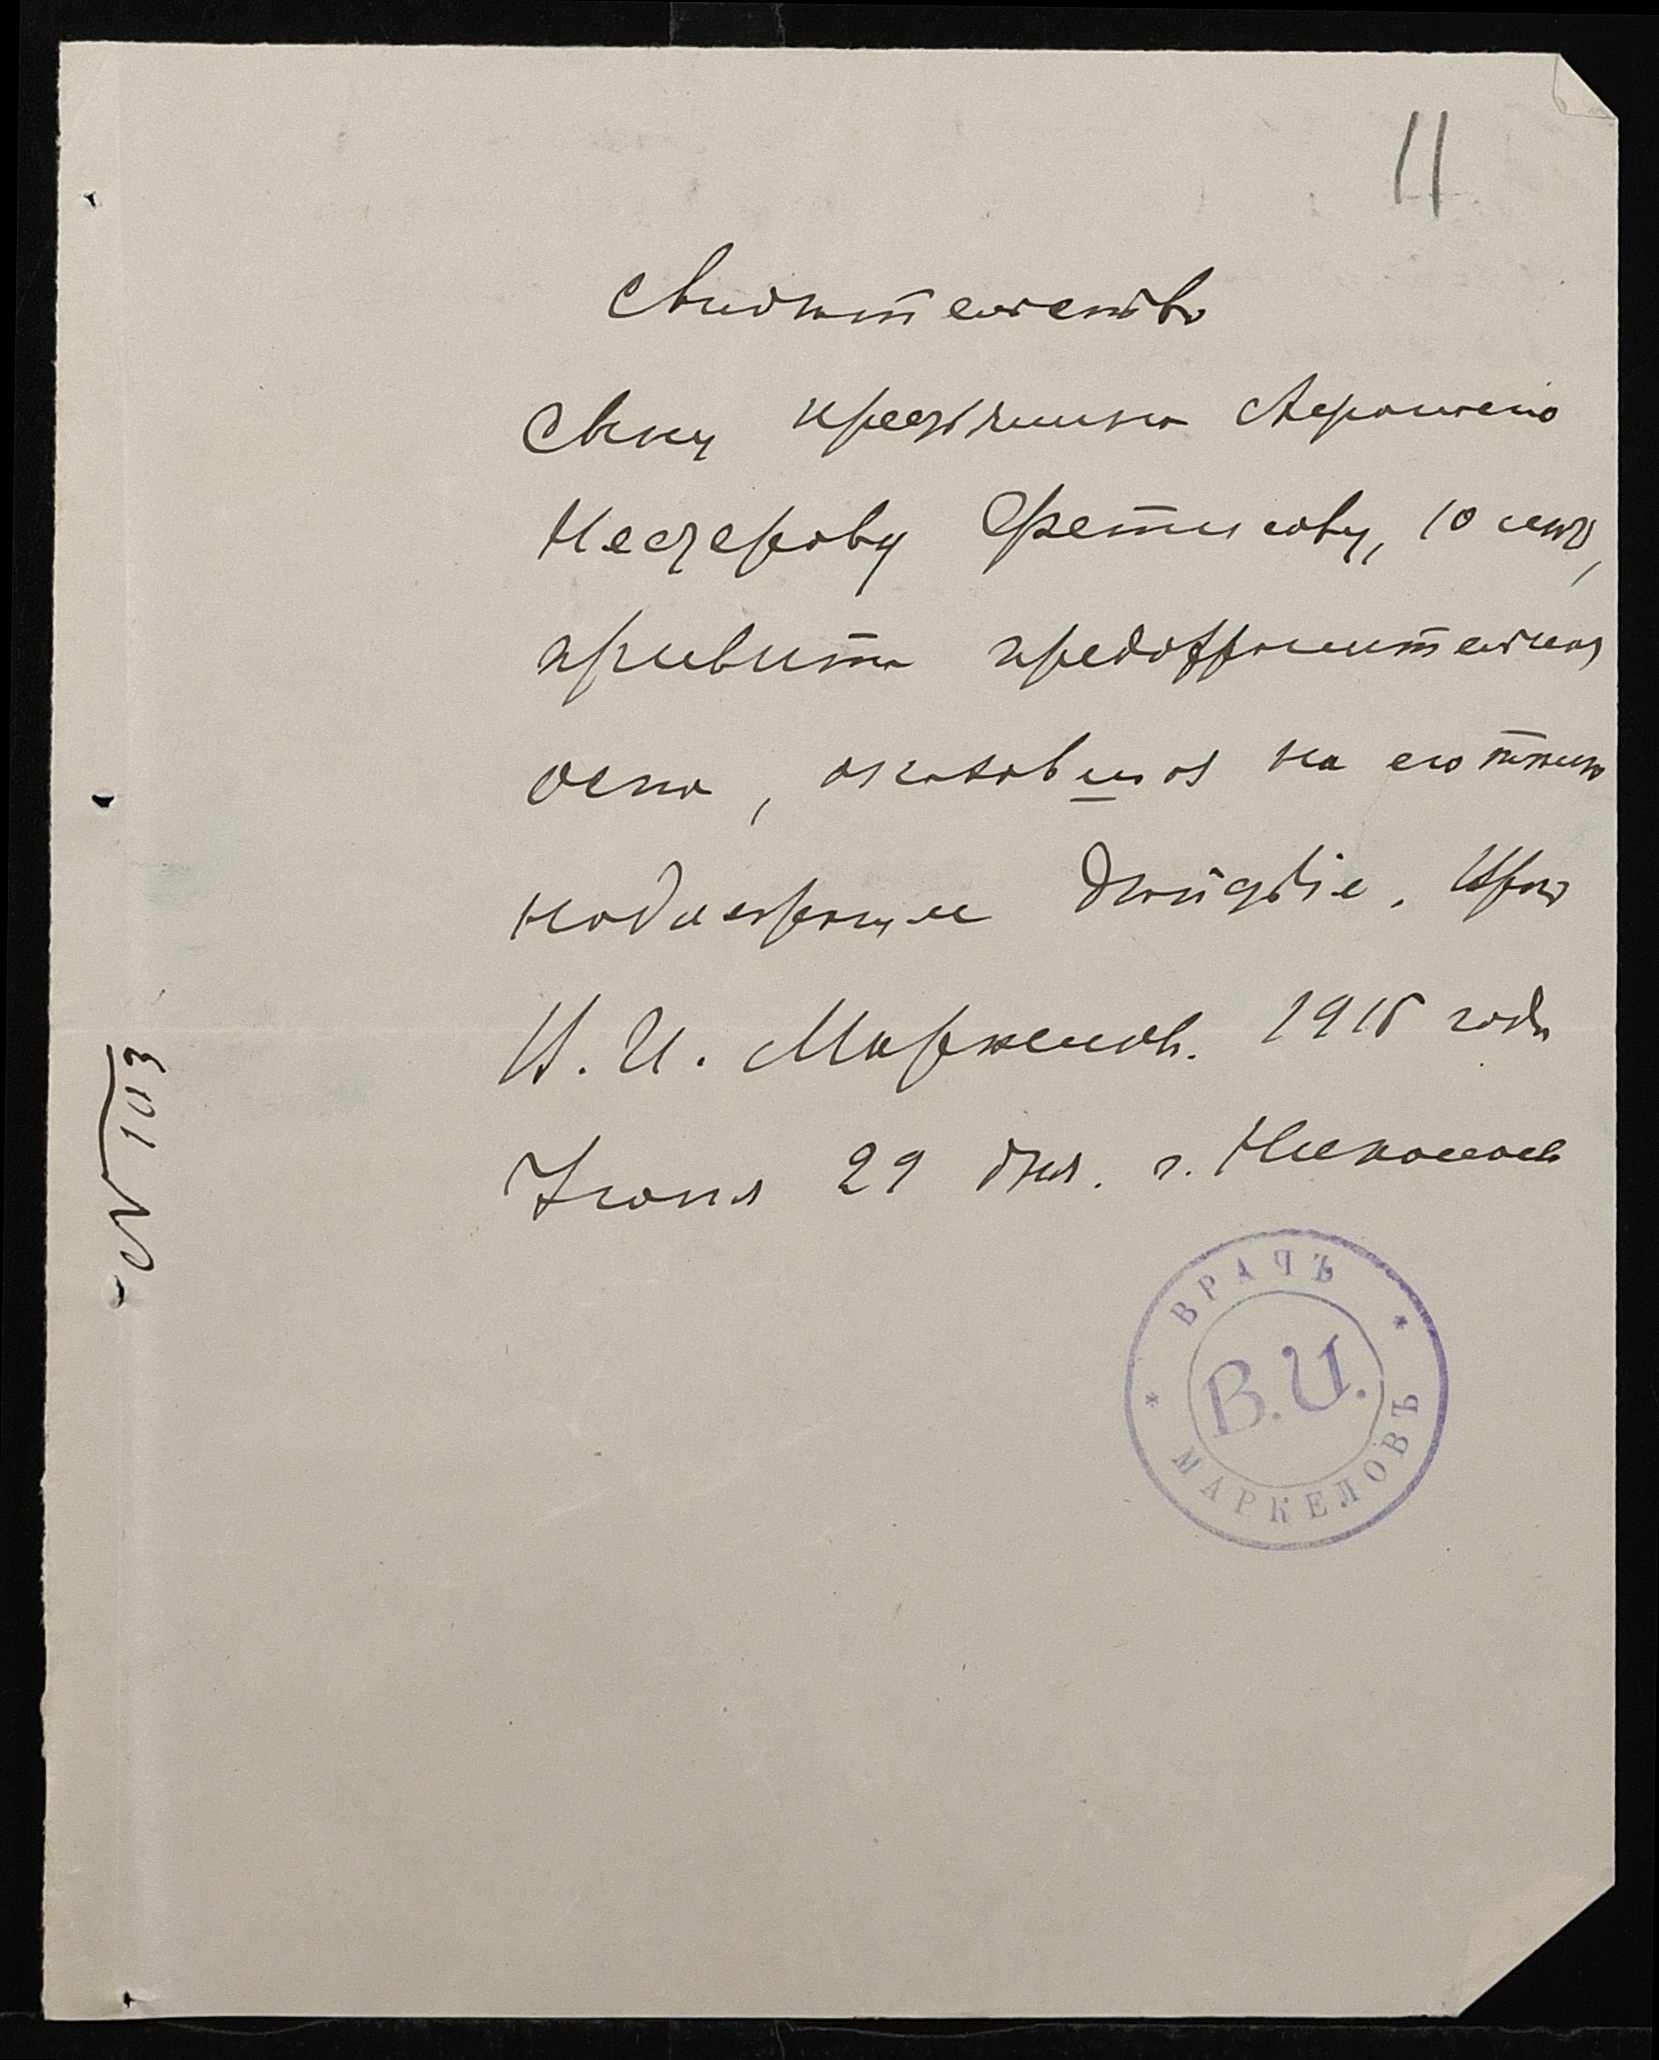 11
Свидѣтельство
Сыну крестьянина
Нестерову Фетисову, 10 лѣтъ,
привита предохранительная
оспа, оказавшая на его тѣло
надлежащее дѣйствіе. Врачъ
В. И. Маркеловъ. 1915 года
Іюня 29 дня. г. Николаевъ
ВРАЧЪ
В.И.
МАРКЕЛОВЪ
№ 103